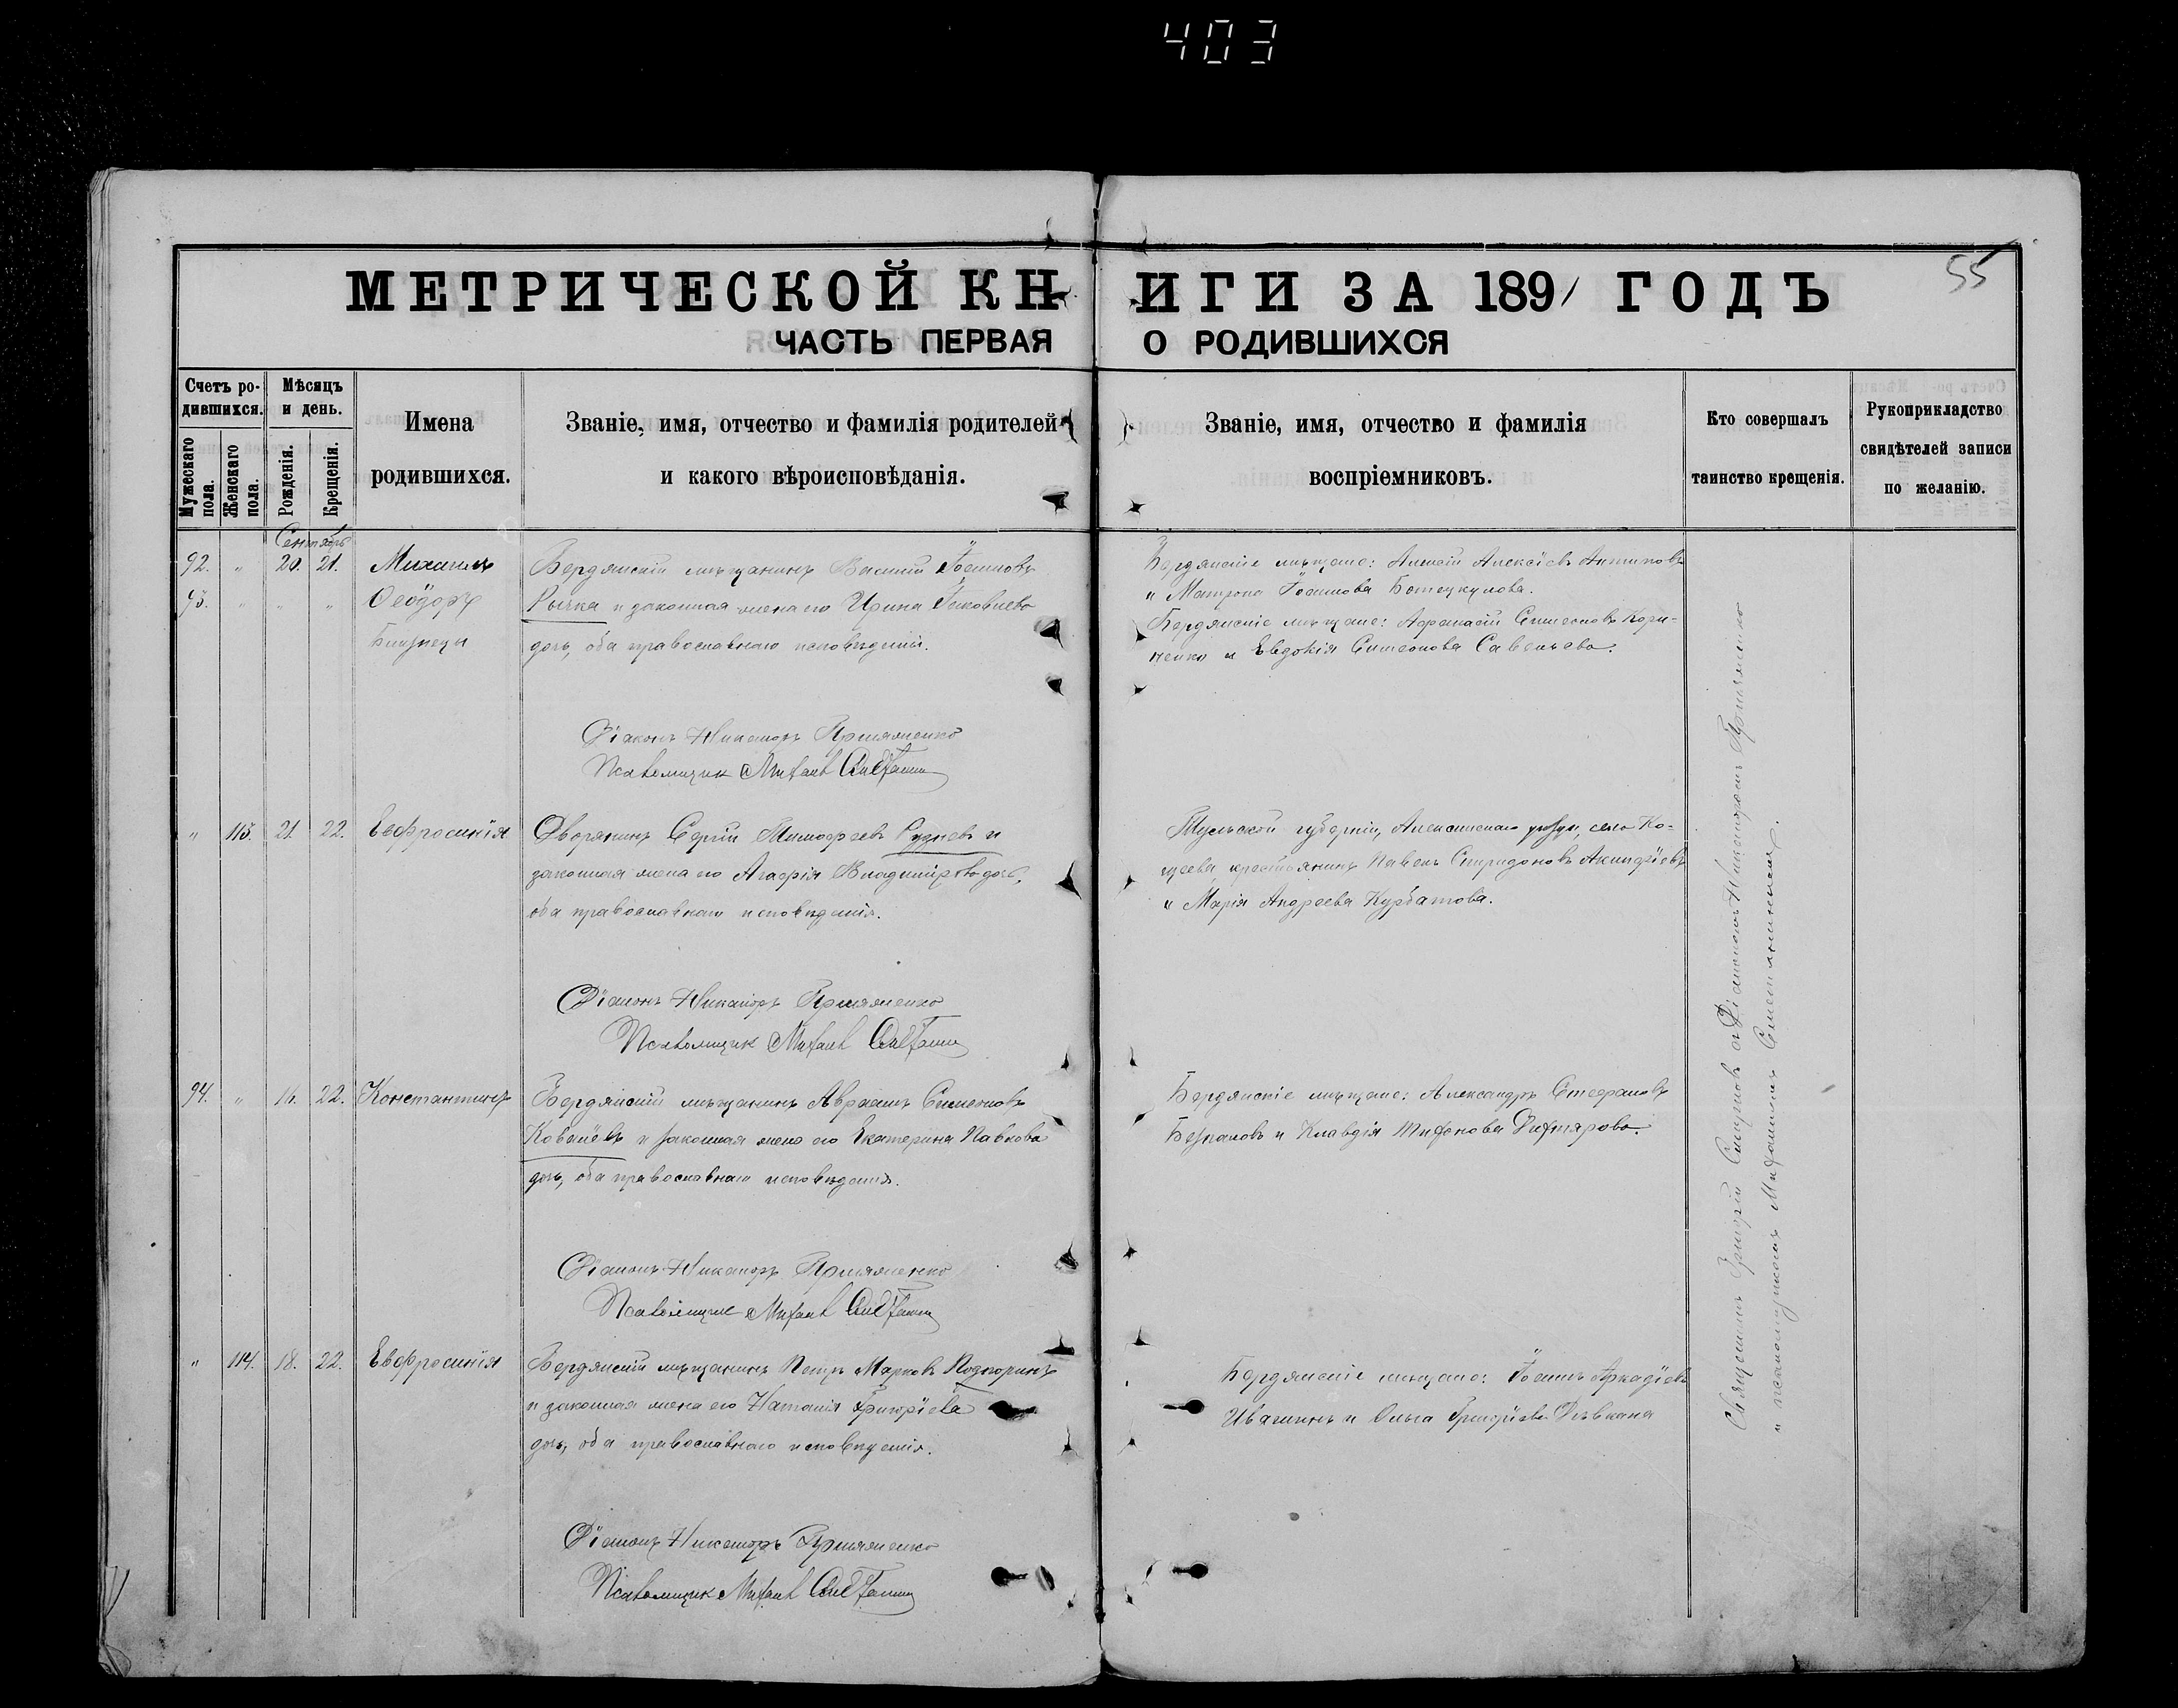 403
55
МЕТРИЧЕСКОЙ КНИГИ ЗА 1891 ГОДЪ
ЧАСТЬ ПЕРВАЯ О РОДИВШИХСЯ
Счетъ ро-
дившихся.
Мужескаго
пола.
Женскаго
пола.
Мѣсяцъ
и день.
Рожденія.
Крещенія.
Имена
родившихся.
Званіе, имя, отчество и фамилія родителей
и какого вѣроисповѣданія.
Званіе, имя, отчество и фамилія
воспріемниковъ.
Кто совершалъ
таинство крещенія.
Рукоприкладство
свидѣтелей записи
по желанію.
Сентябрь
92. " 20. 21. Михаилъ
93. " " " Ѳеодоръ
Близнецы
Бердянскій мѣщанинъ Василій Іоанновъ
Рычка и законная жена его Ирина Іаковлева
дочь, оба православнаго исповѣданія.
Бердянскіе мѣщане: Алексій Алексіевъ Антиповъ
и Матрона Іоаннова
Бердянскіе мѣщане: Аѳанасій Симеоновъ Кори-
ненко и Евдокія Симеонова Савельева.
Діаконъ Никаноръ
Псаломщикъ Михаилъ
" 113. 21. 22. Евфросинія
Дворянинъ Сергій Тимоѳеевъ Рудневъ и
законная жена его Агаѳія Владимірова дочь,
оба православнаго исповѣданія.
Тульской губерніи, Алексинскаго уѣзда, села Ко-
щеева крестьянинъ Павелъ Спиридоновъ Акиндіевъ
и Марія Андреева Курбатова.
Діаконъ Никаноръ
Псаломщикъ Михаилъ
94. " 16. 22. Константинъ
Бердянскій мѣщанинъ Авраамъ Симеоновъ
Ковалевъ и законная жена его Екатерина Павлова
дочь, оба православнаго исповѣданія.
Бердянскіе мѣщане: Александръ Стефановъ
Безпаловъ и Клавдія Тихонова Дегтярова.
Діаконъ Никаноръ
Псаломщикъ Михаилъ
" 114. 18. 22. Евфросинія
Бердянскій мѣщанинъ Петръ Марковъ Подгоринъ
и законная жена его Наталія Григоріева
дочь, оба православнаго исповѣданія.
Бердянскіе мѣщане: Іоаннъ Аркадіевъ
Ивагинъ и Ольга Григоріева
Діаконъ Никаноръ
Псаломщикъ Михаилъ
Священникъ Григорій Смирновъ съ Діакономъ Никаноромъ
и псаломщикомъ Михаиломъ